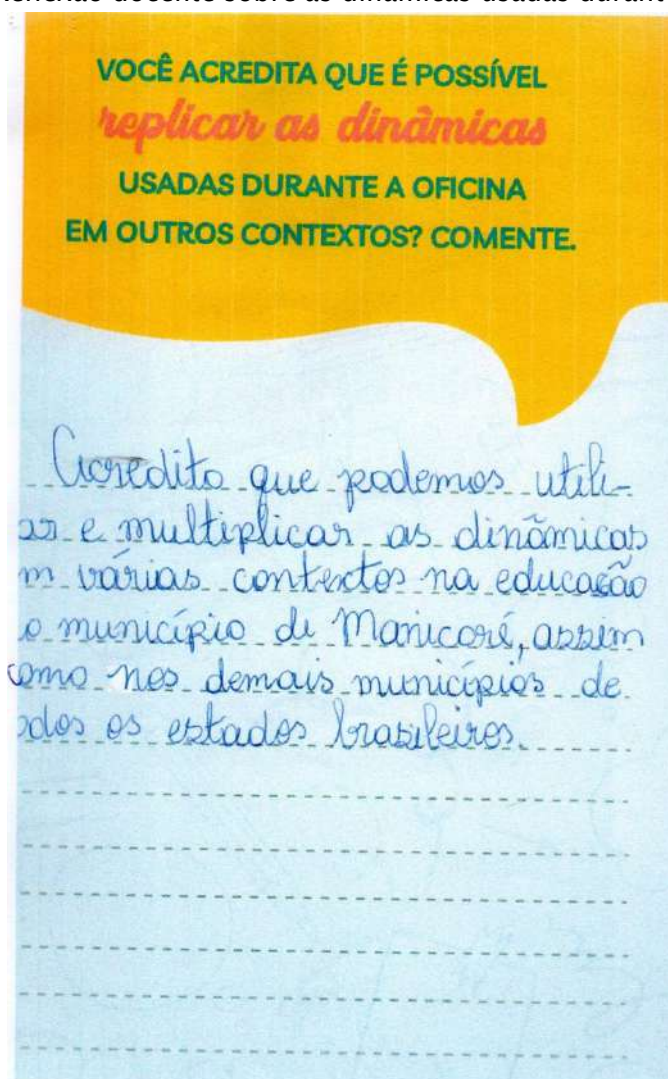 Reflexão docente sobre as dinâmicas usadas durant
VOCÊ ACREDITA QUE É POSSÍVEL
replicar as dinâmicas
USADAS DURANTE A OFICINA
EM OUTROS CONTEXTOS? COMENTE.
Acredito que podemos utili-
ar e multiplicar as dinâmicas
m várias contextos na educação
o município de Manicoré, assim
como nos demais municípios de
odos os estados brasileiros.